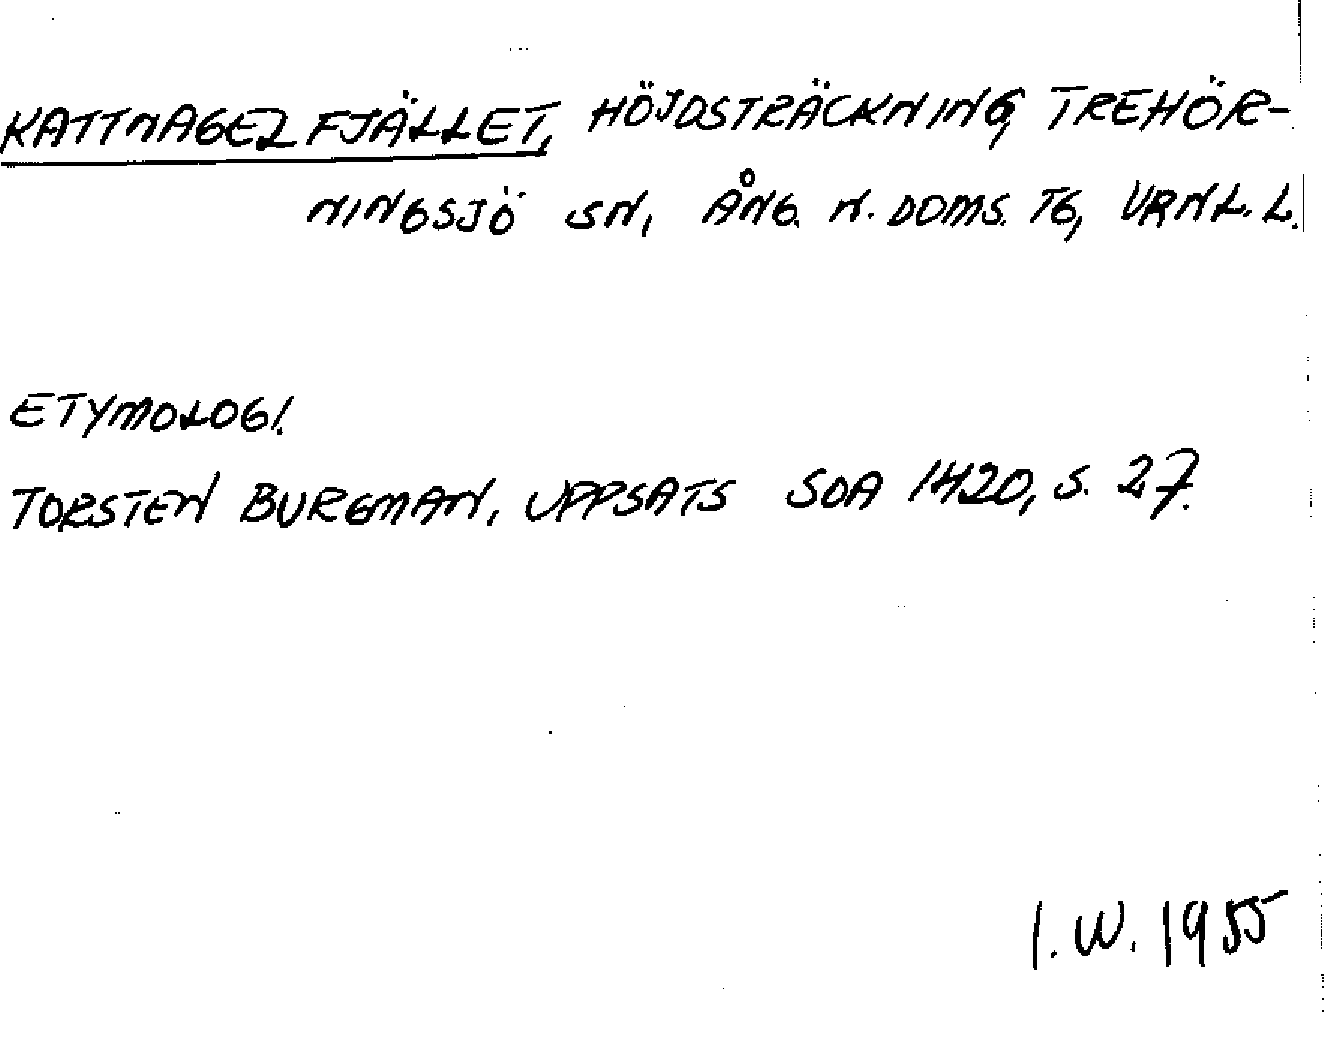 KATTNAGELFJÄLLET, HÖJDSTRÄCKNING, TREHÖR-
NINGSJÖ SN, ÅNG. N. DOMS. TG, VRNL. L.
ETYMOLOGI.
TORSTEN BURGMAN, UPPSATS SOA 1420, S. 27.
I. W. 1955